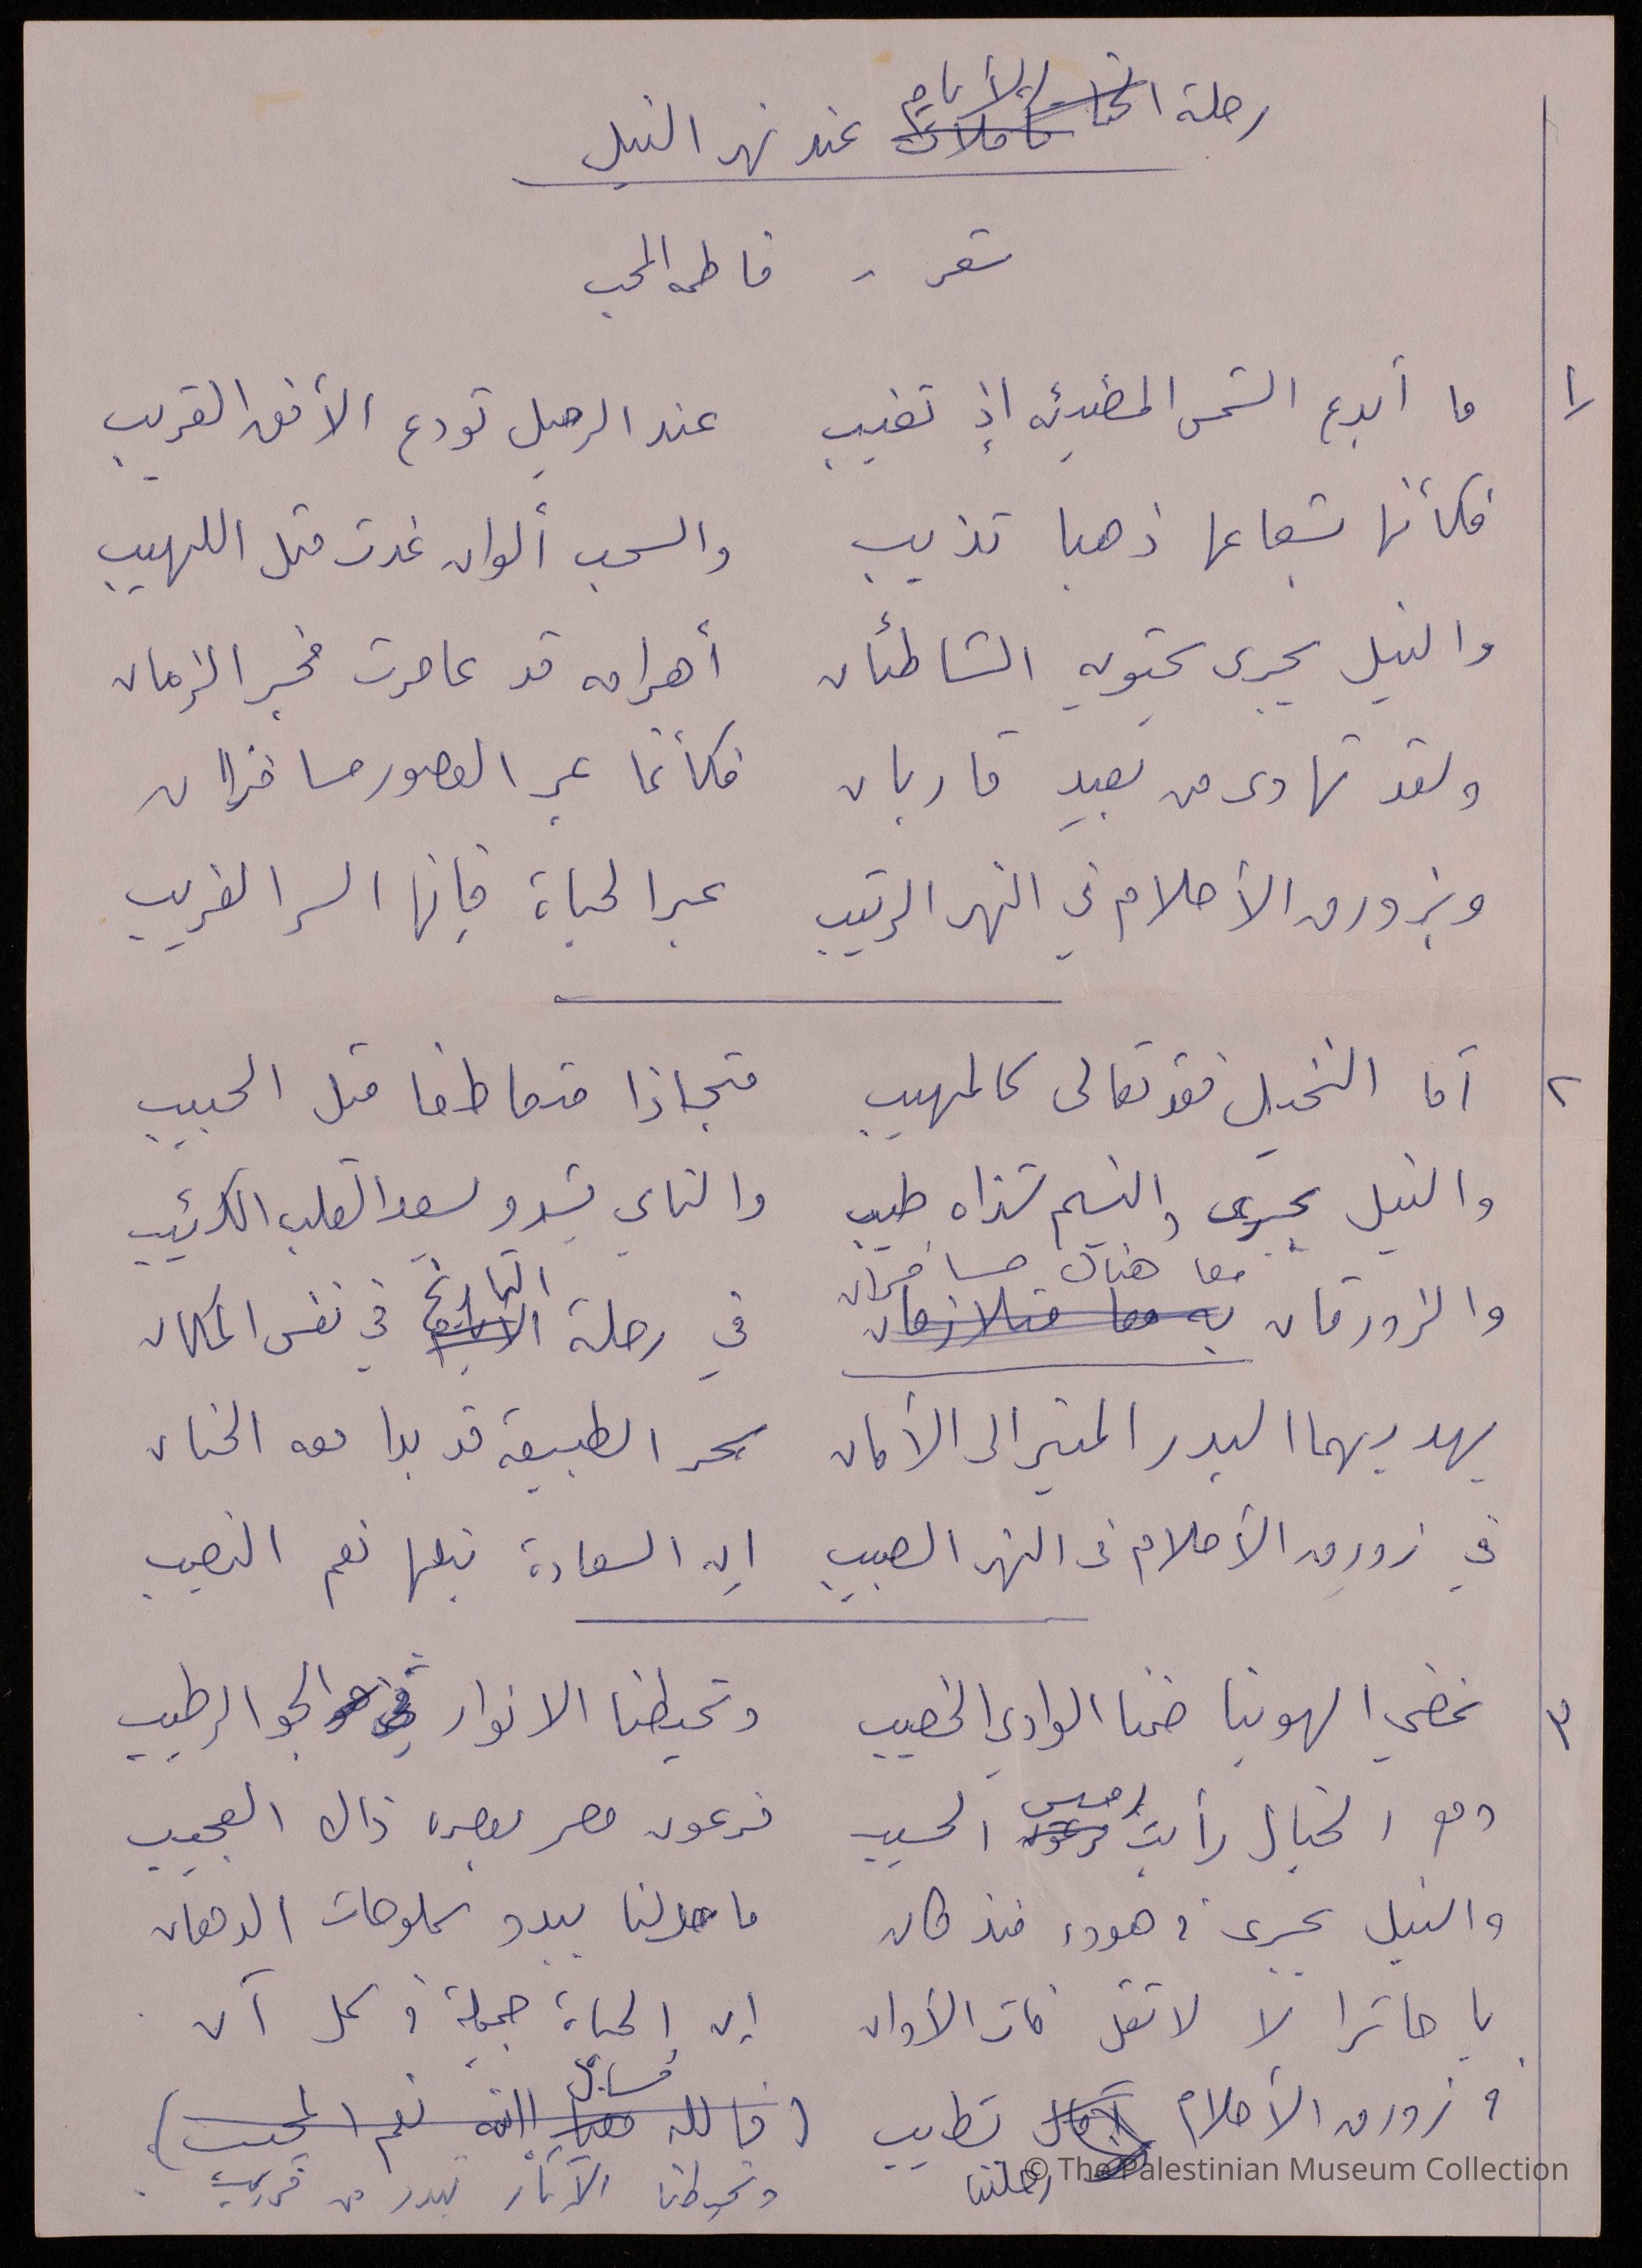 رحلة الأيام عند نهر النيل
شعر - فاطمه المحب
١ ما أبدع الشمس المضيئه إذ تغيب عند الرحيل تودع الأفق القريب
فكأنها شعاعها ذهبا تذيب والسحب ألوان غدت مثل اللهيب
والنيل يجرى يحتويه الشاطئان أهرامه قد عاصرت فجر الزمان
ولقد تهادى من بعيدٍ قاربان فكأنما عبر العصور مسافران
وبزورق الأحلام في النهر الرتيب عبر الحياة فإنها السر الغريب
٢ أما النخيل فقد تعالى كالمهيب متجاذا متعاطفا مثل الحبيب
والنيل يجرى والنسيم شذاه طيب والناي يشدو يسعد القلب الكئيب
معا هناك مسافران التاريخ
والزورقان به معا متلازمان في رحلة الأيام في نفس المكان
يهديهما البدر المنير الى الأمان سحر الطبيعة قد بدا معه الحنان
في زورق الأحلام فى النهر الصبيب إن السعادة نبلها نعم النصيب
٣ نمضي الهوينا ضمنا الوادي الخصيب وتحيطنا الانوار في الجو الرطيب
رمسيس
ومع الخيال رأيت فرعون الحسيب فرعون مصر بعصره ذاك العجيب
والنيل يجرى فى هدوء منذ كان ما حولنا يبدو كلوحات الدهان
يا حائرا لا لا تقل فات الأوان إن الحياة جميلة فى كل آن
فى زورق الأحلام تطيب (فالله الله نعم المجيب)
رحلتنا وتحيطنا الآثار تبدو من قريب
© The Palestinian Museum Collection